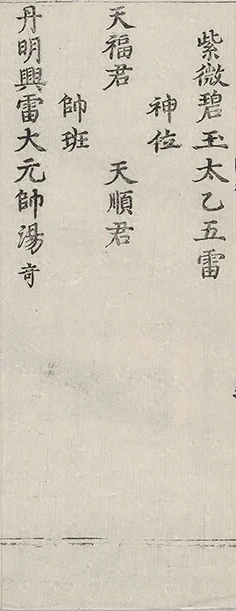 紫微碧玉太乙五雷
神位
天福君　天順君
帥班
丹明興雷大元帥湯奇